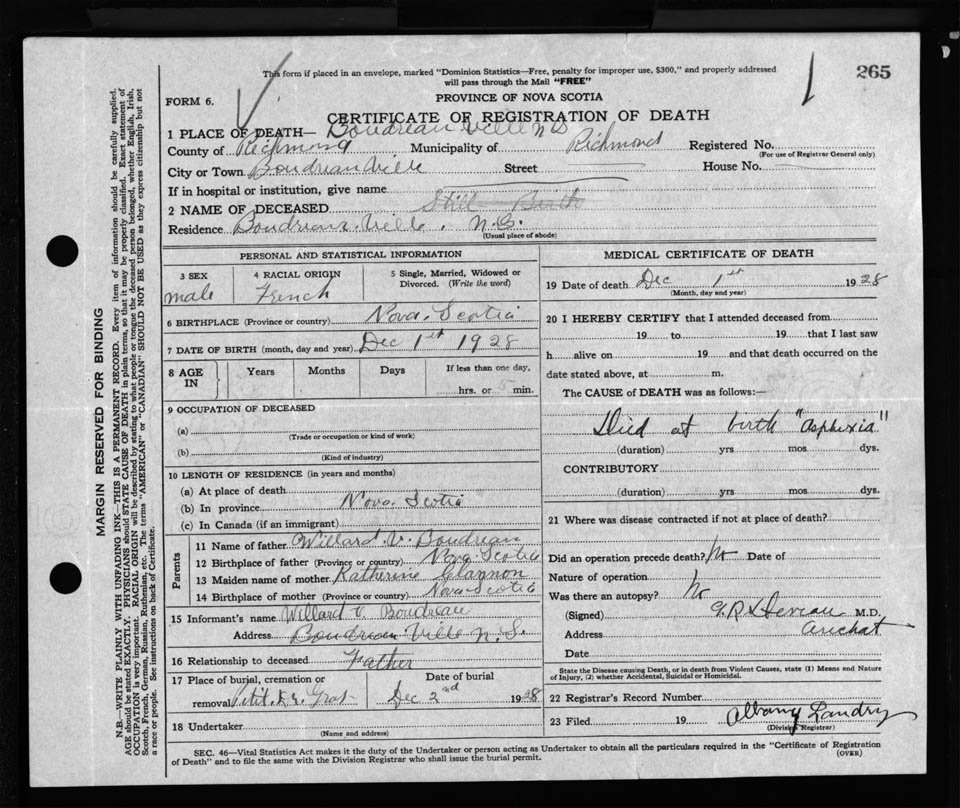 This form if placed in an envelope, marked "Dominion Statistics—Free, penalty for improper use, $300," and properly addressed
will pass through the Mail "FREE"
265
FORM 6.
PROVINCE OF NOVA SCOTIA
CERTIFICATE OF REGISTRATION OF DEATH
1 PLACE OF DEATH— Boudreau Ville N S
County of Richmond Municipality of Richmond Registered No.
(For use of Registrar General only)
City or Town Boudreauville Street House No.
If in hospital or institution, give name
2 NAME OF DECEASED Still Birth
Residence Boudreau Ville. N.S.
(Usual place of abode)
MARGIN RESERVED FOR BINDING
N.B.—WRITE PLAINLY WITH UNFADING INK—THIS IS A PERMANENT RECORD. Every item of information should be carefully supplied.
AGE should be stated EXACTLY. PHYSICIANS should STATE CAUSE OF DEATH in plain terms, so that it may be properly classified. Exact statement of
OCCUPATION is very important. RACIAL ORIGIN will be described by stating to what people or tongue the deceased person belonged, whether English, Irish,
Scotch, French, German, Russian, Ruthenian, etc. The terms "AMERICAN" or "CANADIAN" SHOULD NOT BE USED as they express citizenship but not
a race or people. See instructions on back of Certificate.
PERSONAL AND STATISTICAL INFORMATION
3 SEX 4 RACIAL ORIGIN 5 Single, Married, Widowed or
Divorced. (Write the word)
male French
6 BIRTHPLACE (Province or country) Nova Scotia
7 DATE OF BIRTH (month, day and year) Dec 1st 1928
8 AGE IN Years Months Days If less than one day,
hrs. or 5 min.
9 OCCUPATION OF DECEASED
(a)
(Trade or occupation or kind of work)
(b)
(Kind of industry)
10 LENGTH OF RESIDENCE (in years and months)
(a) At place of death
(b) In province Nova Scotia
(c) In Canada (if an immigrant)
Parents
11 Name of father Willard V. Boudreau
12 Birthplace of father (Province or country) Nova Scotia
13 Maiden name of mother Katherine Glannon
14 Birthplace of mother (Province or country) Nova Scotia
15 Informant's name Willard V Boudreau
Address Boudreau Ville N.S.
16 Relationship to deceased Father
17 Place of burial, cremation or Date of burial
removal Petit de Grat Dec 2nd 1928
18 Undertaker
(Name and address)
MEDICAL CERTIFICATE OF DEATH
19 Date of death Dec 1st 1928
(Month, day and year)
20 I HEREBY CERTIFY that I attended deceased from
19 to 19 that I last saw
h alive on 19 and that death occurred on the
date stated above, at m.
The CAUSE of DEATH was as follows:—
Died at birth "asphexia"
(duration) yrs mos dys.
CONTRIBUTORY
(duration) yrs mos dys.
21 Where was disease contracted if not at place of death?
Did an operation precede death? No Date of
Nature of operation
Was there an autopsy? No
(Signed) M.D.
Address Arichat
Date
State the Disease causing Death, or in death from Violent Causes, state (1) Means and Nature
of Injury, (2) whether Accidental, Suicidal or Homicidal.
22 Registrar's Record Number
23 Filed 19 Albany Landry
(Division Registrar)
SEC. 46—Vital Statistics Act makes it the duty of the Undertaker or person acting as Undertaker to obtain all the particulars required in the "Certificate of Registration
of Death" and to file the same with the Division Registrar who shall issue the burial permit.
(OVER)